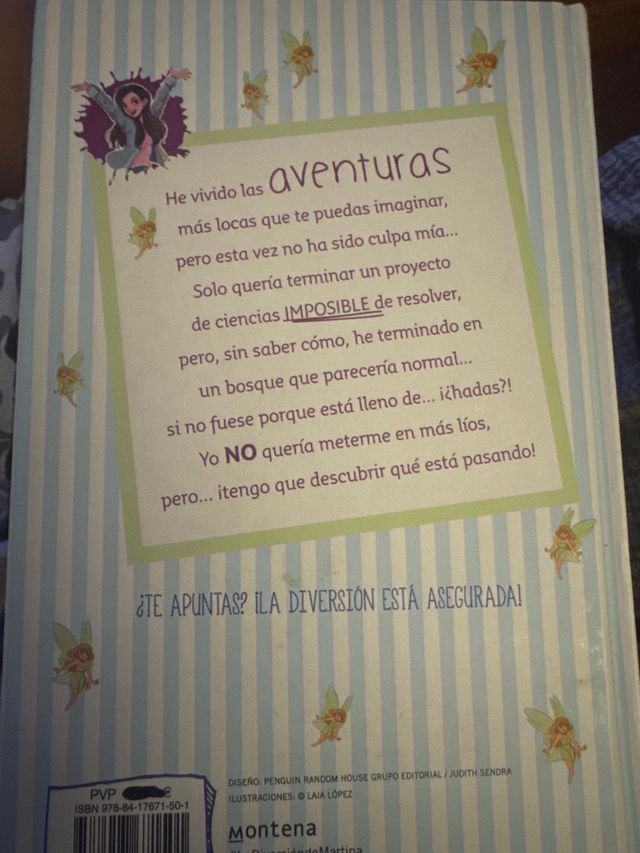 He vivido las aventuras
más locas que te puedas imaginar,
pero esta vez no ha sido culpa mía...
Solo quería terminar un proyecto
de ciencias IMPOSIBLE de resolver,
pero, sin saber cómo, he terminado en
un bosque que parecería normal...
si no fuese porque está lleno de... ¡¿hadas?!
Yo NO quería meterme en más líos,
pero... ¡tengo que descubrir qué está pasando!
¿TE APUNTAS? ¡LA DIVERSIÓN ESTÁ ASEGURADA!
DISEÑO: PENGUIN RANDOM HOUSE GRUPO EDITORIAL / JUDITH SENDRA
ILUSTRACIONES: © LAIA LÓPEZ
PVP €
ISBN 978-84-17671-50-1
Montena